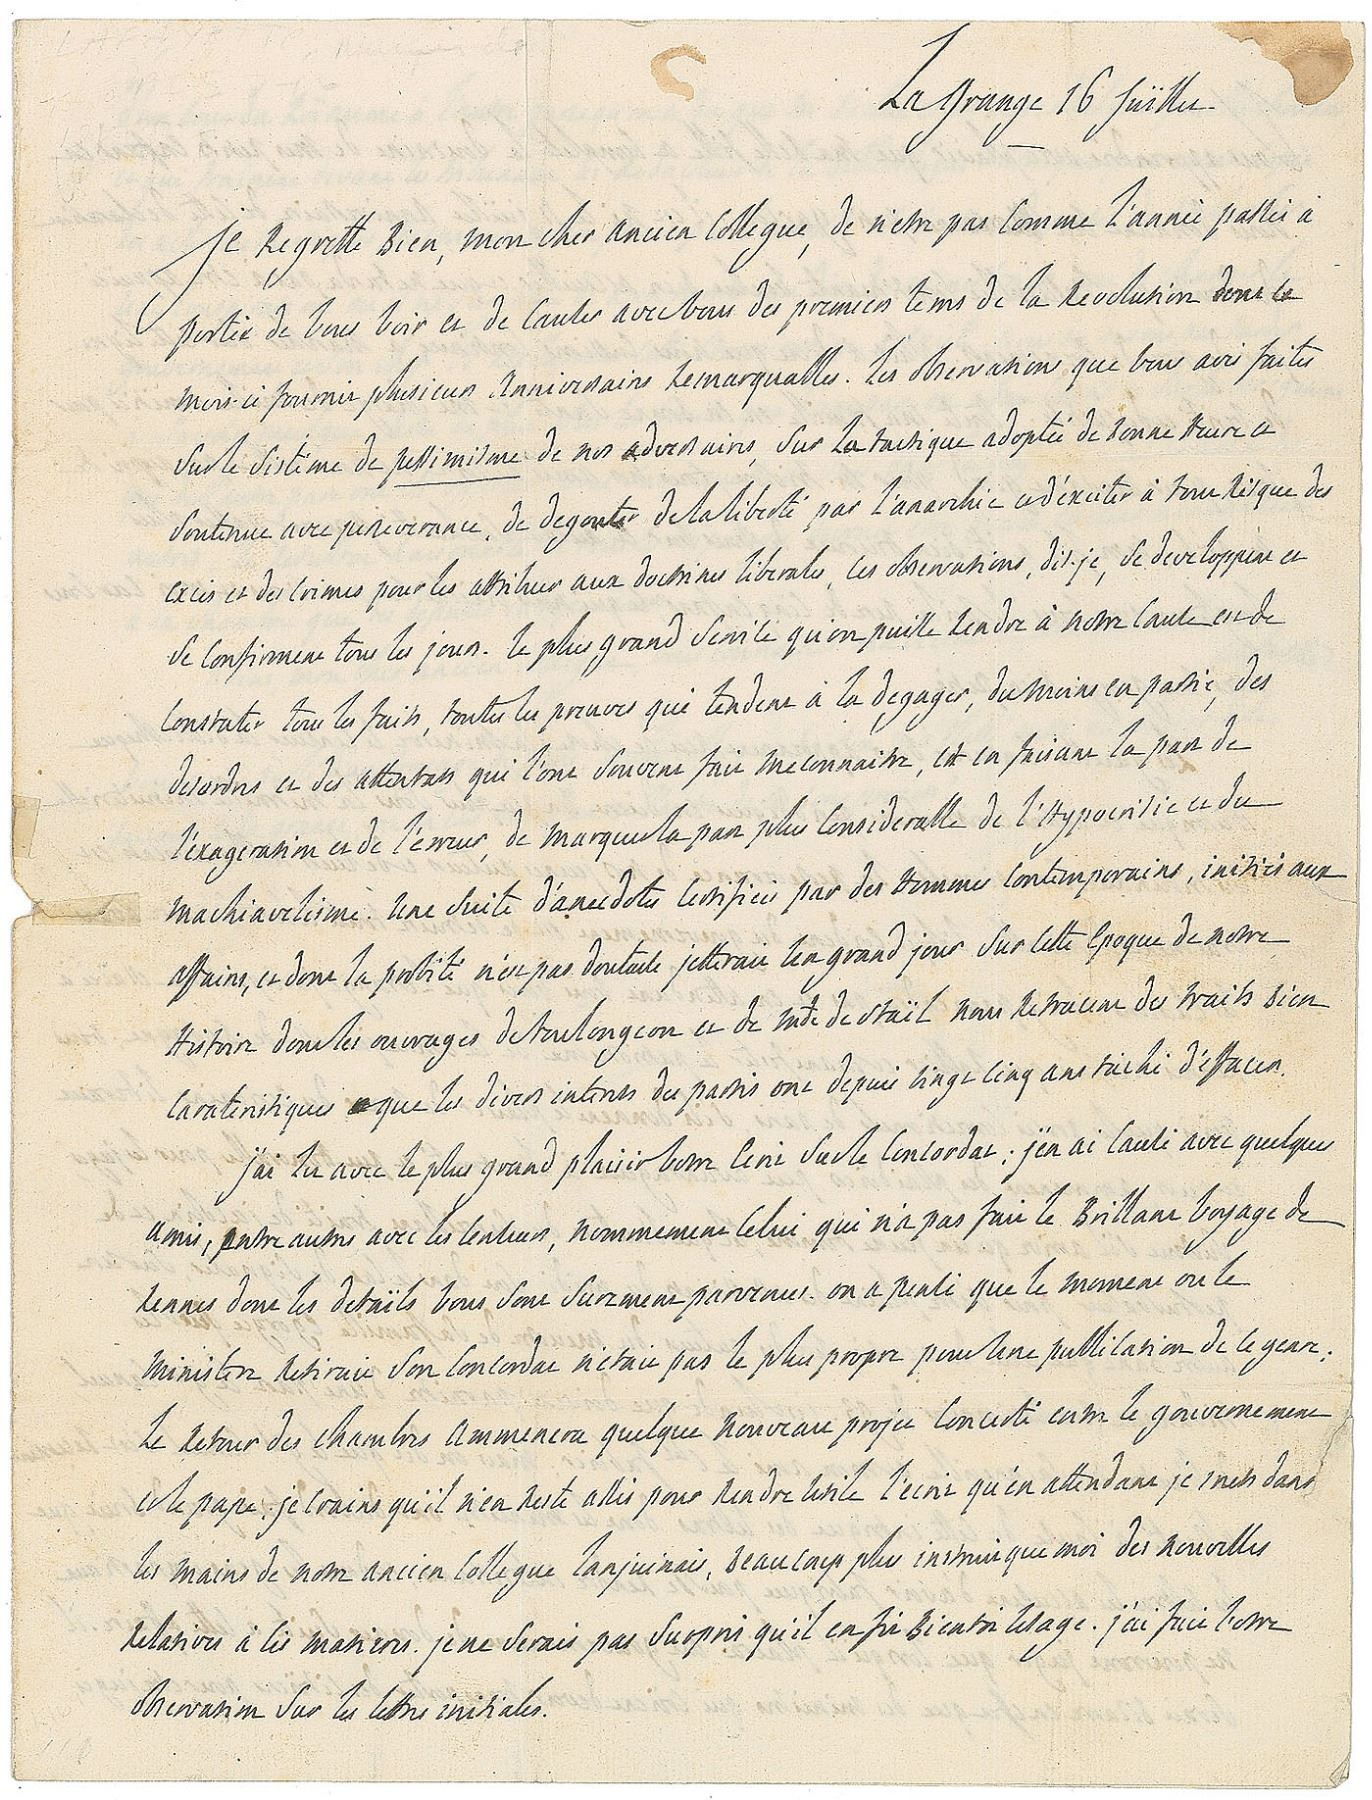 La Grange 16 juillet
je Regrette Bien, mon cher ancien Collegue, de n'etre pas Comme l'année passée à
portée de vous voir et de Causer avec vous des premiers tems de la Revolution dont ce
mois-ci fournit plusieurs Anniversaires Remarquables. les observations que vous avés faites
sur le sistême de pessimisme de nos adversaires, sur la tactique adoptée de Bonne Heure et
soutenue avec perseverance, de degouter de la liberté par l'anarchie et d'éxciter à tout Risque des
excès et des Crimes pour les attribuer aux doctrines liberales, ces observations, dis-je, se developpent et
se Confirment tous les jours. le plus grand service qu'on puisse Rendre à notre Cause est de
Constater tous les faits, toutes les preuves qui tendent à la dégager, du moins en partie, des
desordres et des attentats qui l'ont souvent fait meconnaitre, et en faisant la part de
l'éxageration et de l'érreur, de marquer la part plus Considerable de l'Hypocrisie et du
machiavelisme. Une suite d'anecdotes Certifiées par des Hommes Contemporains, initiés aux
affaires, et dont la probité n'est pas douteuse jetterait un grand jour sur cette Epoque de notre
Histoire dont les ouvrages de toulongeon et de mde de staël nous Retracent des traits Bien
Carateristiques que les divers interets des partis ont depuis vingt cinq ans taché d'éffacer.
j'ai lu avec le plus grand plaisir votre Ecrit sur le Concordat; j'en ai Causé avec quelques
amis, entre autres avec les Censeurs, nommement Celui qui n'a pas fait le Brillant voyage de
Rennes dont les détaïls vous sont surement parvenus. on a pensé que le moment ou le
ministere Retirait son Concordat n'etait pas le plus propre pour une publication de ce genre;
Le Retour des Chambres Ammenera quelque nouveau projet Concerté entre le gouvernement
et le pape; je Crains qu'il n'en Reste assés pour Rendre utile l'écrit qu'en attendant je mets dans
les mains de notre ancien Collegue lanjuinais, Beaucoup plus instruit que moi des nouvelles
Relatives à ces matieres. je ne serais pas surpris qu'il en fit Bientot usage. j'ai fait votre
observation sur les lettres initiales.